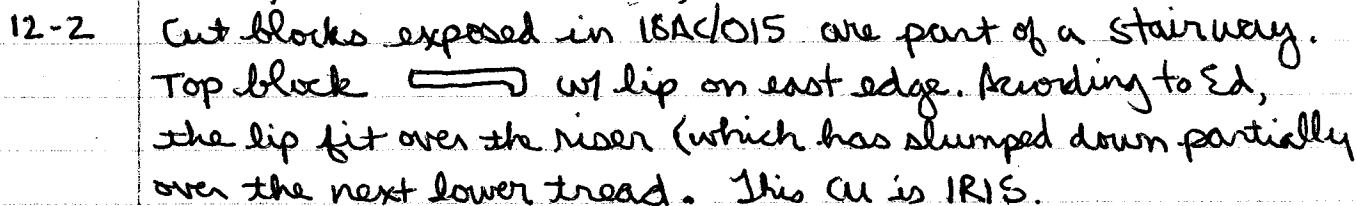 12-2 Cut blocks exposed in 18AC/015 are part of a stairway.
Top block w/ lip on east edge. According to Ed,
the lip fit over the riser (which has slumped down partially
over the next lower tread. This CU is IRIS.